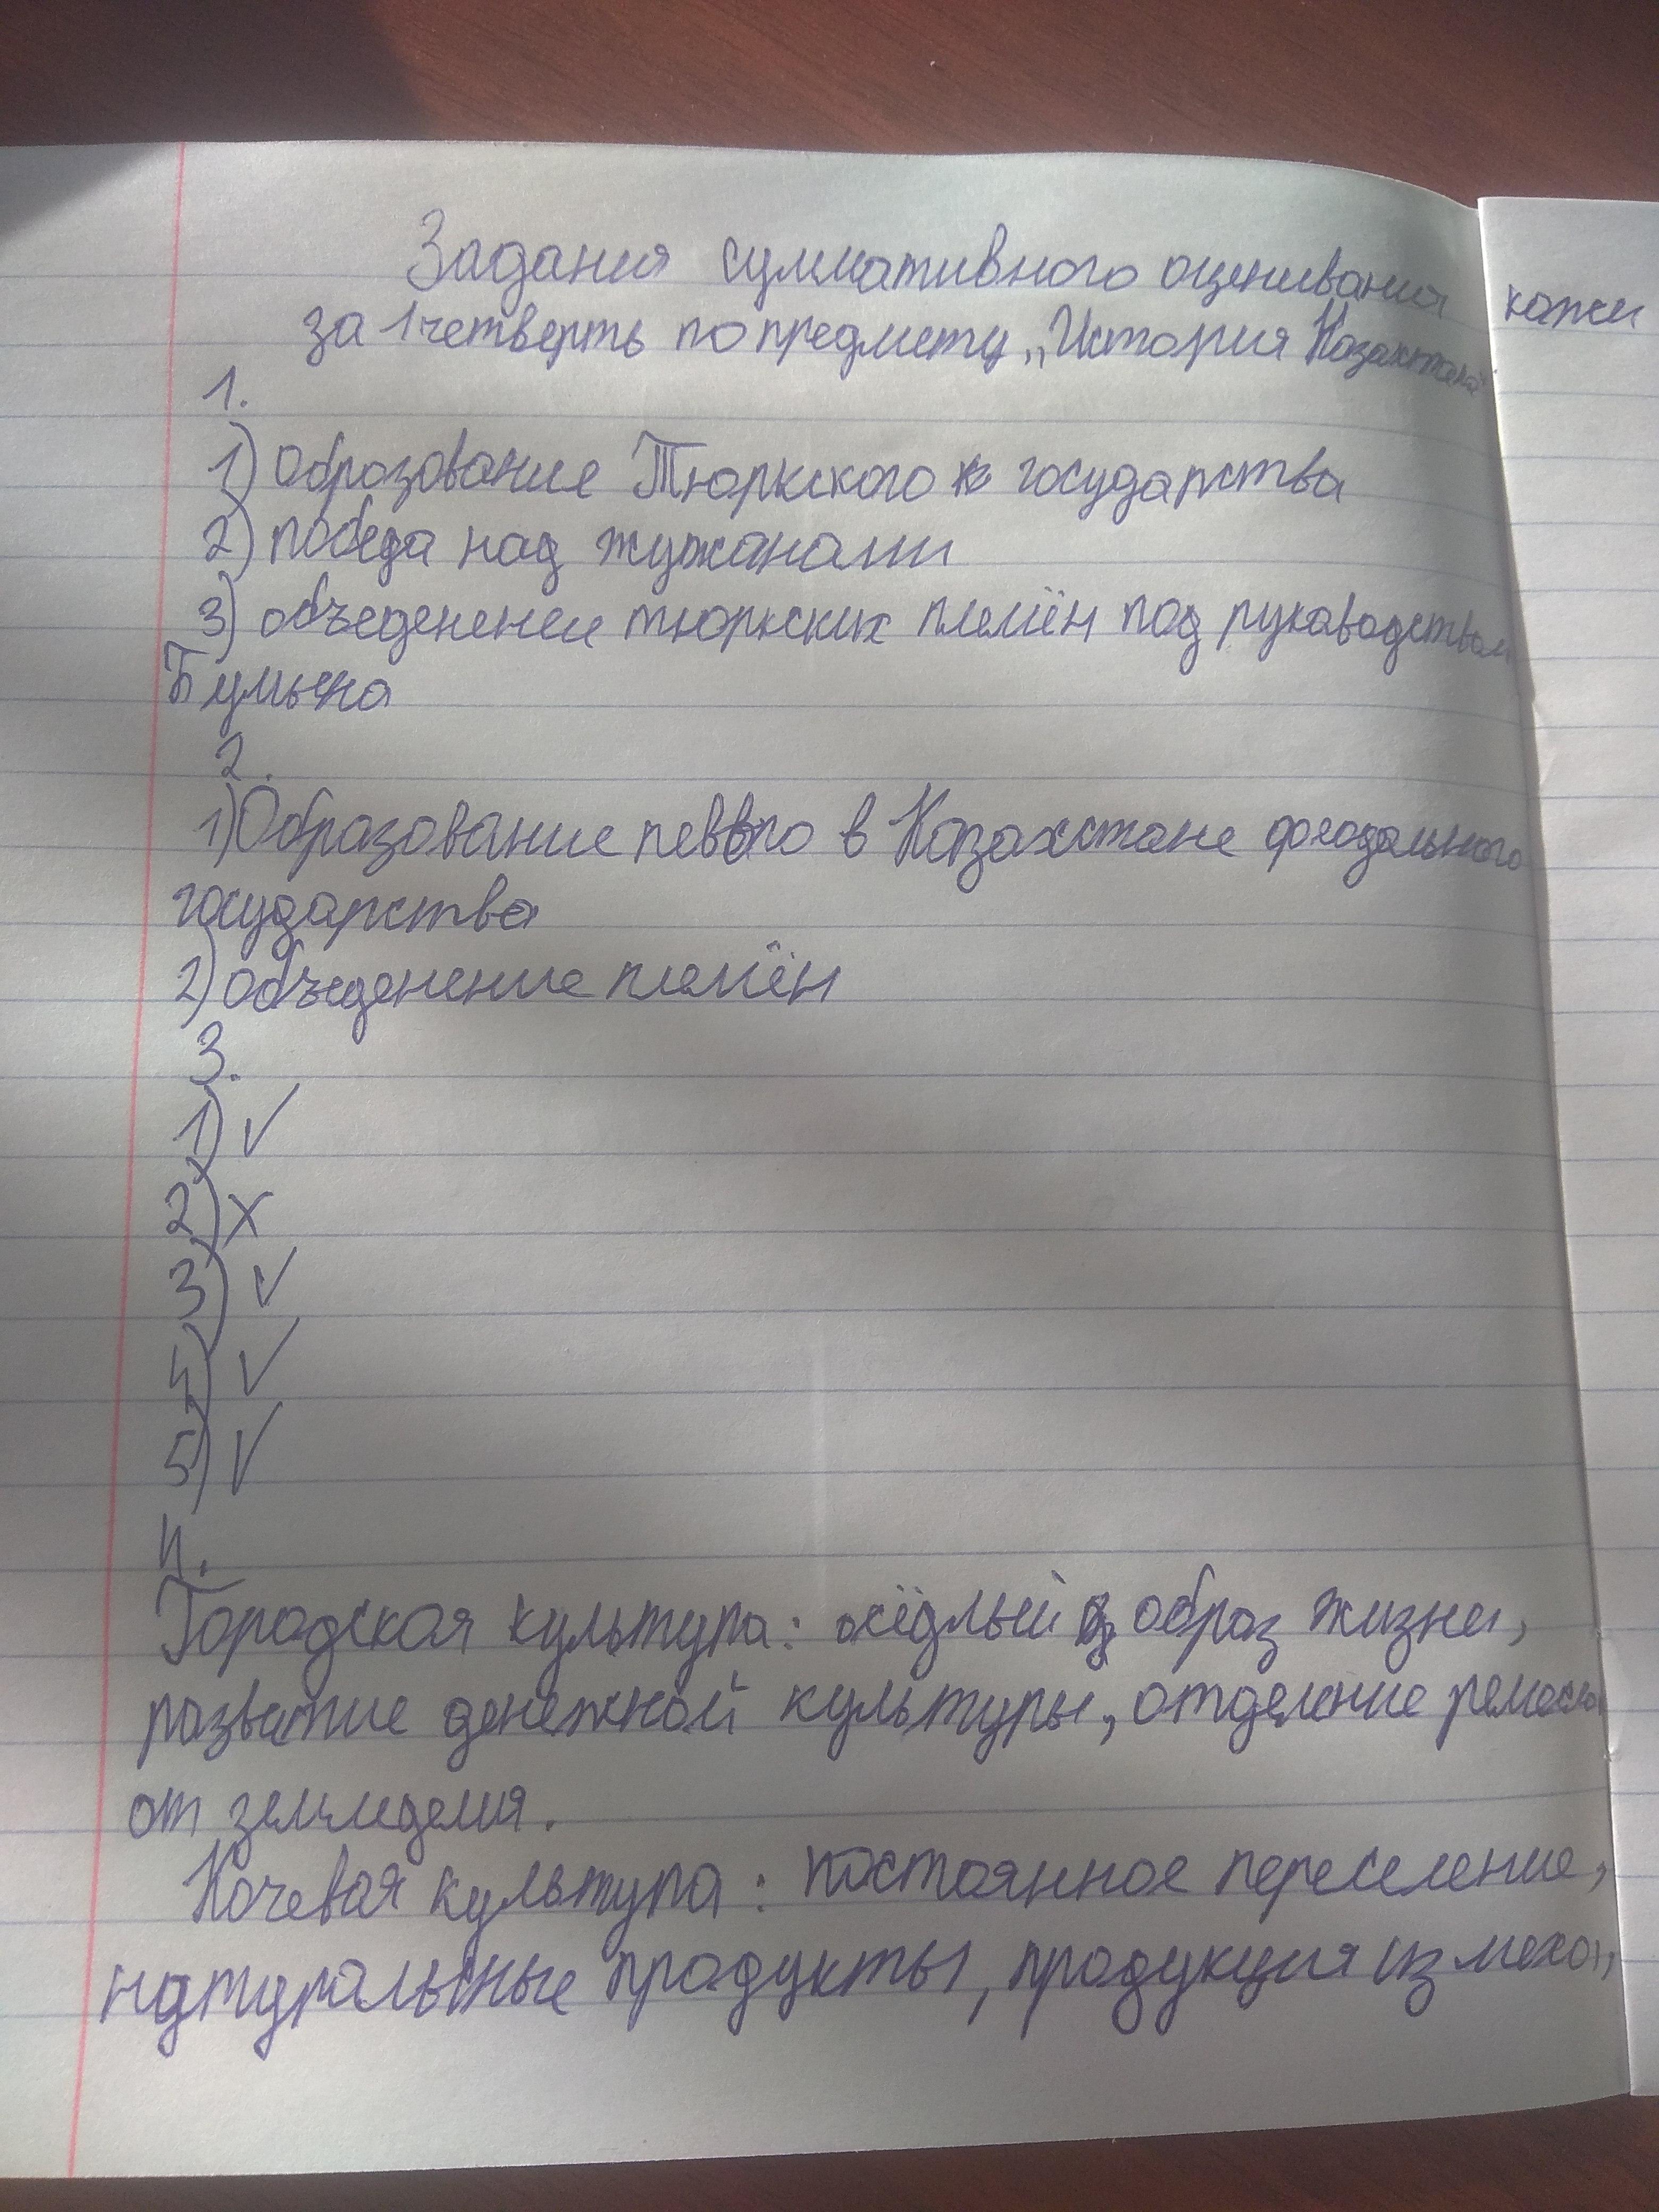 Задания суммативного оценивания
за 1 четверть по предмету „История Казахстана"
1.
1) Образование Тюркского государства
2) победа над жужанами
3) объеденение тюркских племён под рукаводством
Бумына
2.
1) Образование певвго в Казахстане феодального
государства
2) объеденение племён
3.
1) ✓
2) х
3) ✓
4) ✓
5) ✓
4.
Городская культура: осёдлый образ жизни,
развитие денежной культуры, отделение ремесла
от земледелия.
Кочевая культура: постоянное переселение,
натуральные продукты, продукция из меха и
кожи